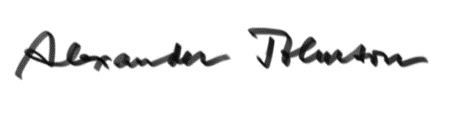 Alexander Johnson